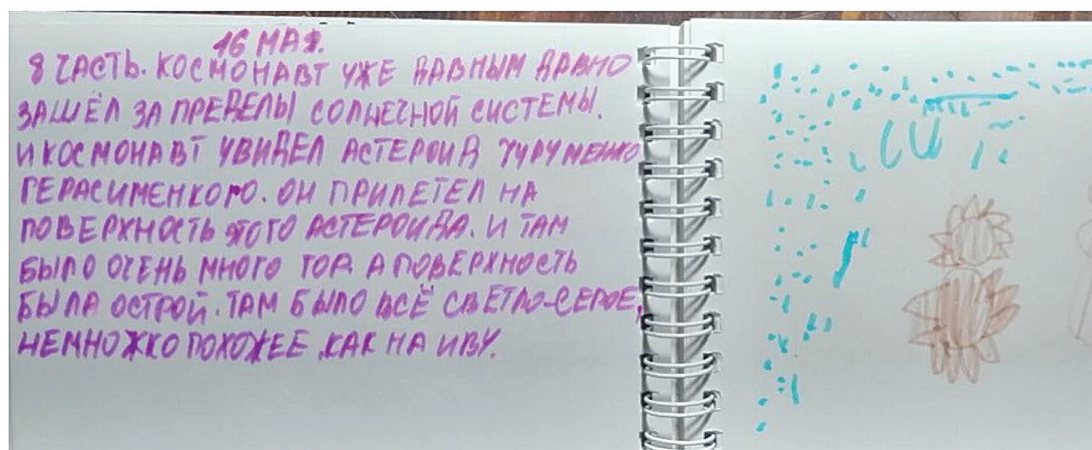 16 МАЯ.
8 ЧАСТЬ. КОСМОНАВТ УЖЕ ДАВНЫМ ДАВНО
ЗАШЁЛ ЗА ПРЕДЕЛЫ СОЛНЕЧНОЙ СИСТЕМЫ.
И КОСМОНАВТ УВИДЕЛ АСТЕРОИД
ГЕРАСИМЕНКОГО. ОН ПРИЛЕТЕЛ НА
ПОВЕРХНОСТЬ ЭТОГО АСТЕРОИДА. И ТАМ
БЫЛО ОЧЕНЬ МНОГО ГОР. А ПОВЕРХНОСТЬ
БЫЛА ОСТРОЙ. ТАМ БЫЛО ВСЁ СВЕТЛО-СЕРОЕ,
НЕМНОЖКО ПОХОЖЕЕ, КАК НА ИВУ.